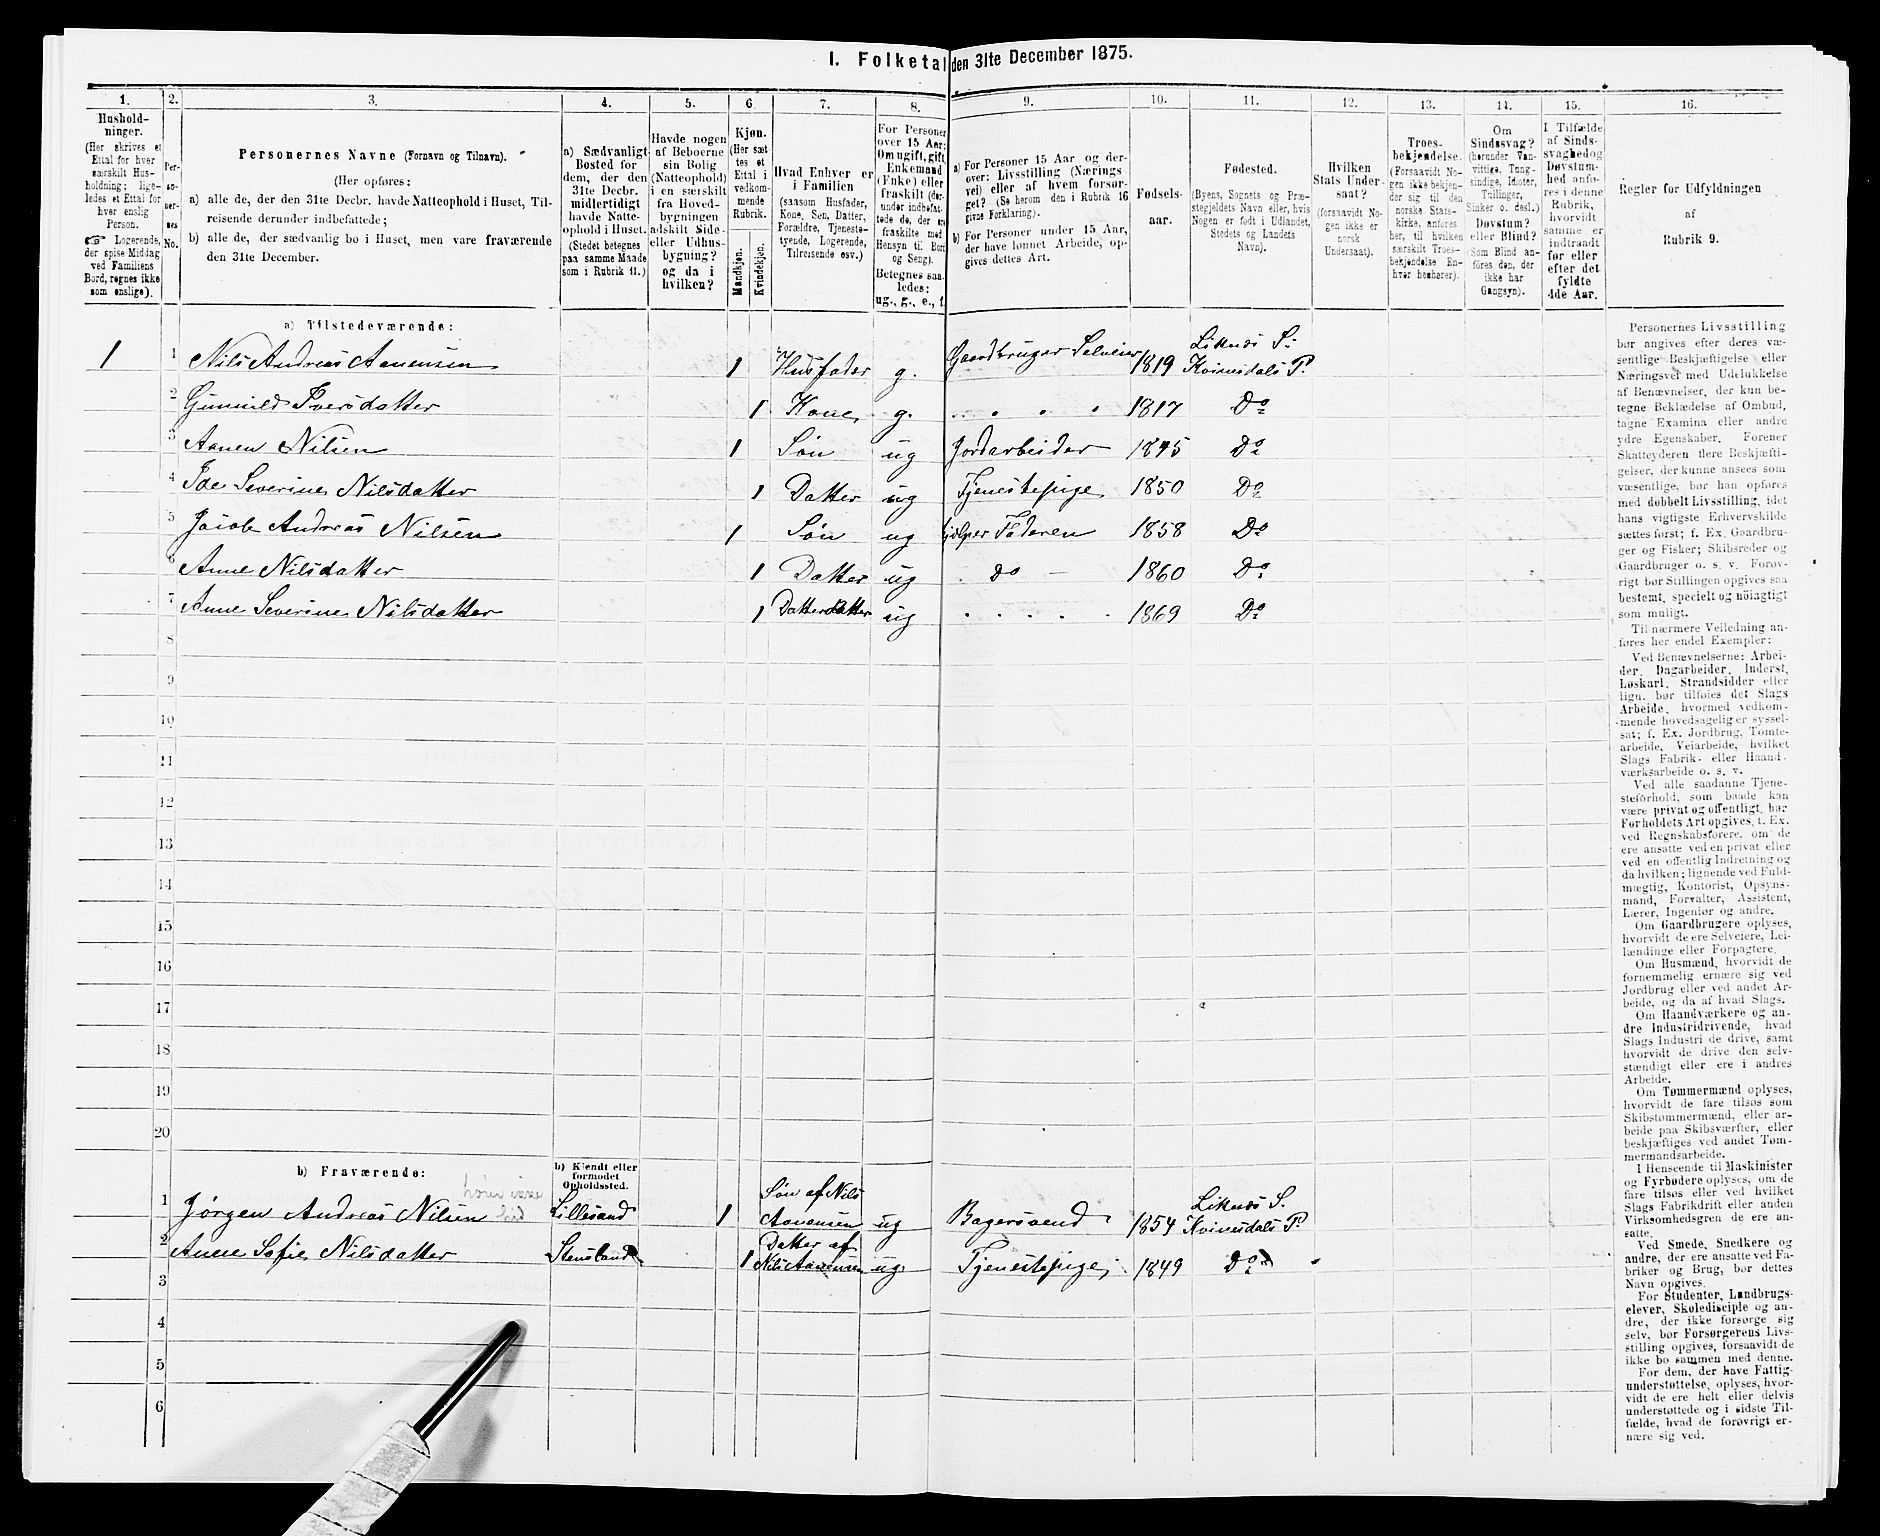 I. Folketal den 31te December 1875.
1. 2. 3. 4. 5. 6. 7. 8. 9. 10. 11. 12. 13. 14. 15. 16.
Hushold-
ninger.
(Her skrives et
Ettal for hver
særskilt Hus-
holdning; lige-
ledes et Ettal for
hver enslig
Person.
☞ Logerende,
der spise Middag
ved Familiens
Bord, regnes ikke
som enslige).
Per-
so-
ner-
nes
No.
Personernes Navne (Fornavn og Tilnavn).
(Her opføres:
a) alle de, der den 31te Decbr. havde Natteophold i Huset, Til-
reisende derunder indbefattede;
b) alle de, der sædvanlig bo i Huset, men vare fraværende
den 31te December.
a) Sædvanligt
Bosted for
dem, der den
31te Decbr.
midlertidigt
havde Natte-
ophold i Huset.
(Stedet betegnes
paa samme Maade
som i Rubrik 11.)
Havde nogen
af Beboerne
sin Bolig
(Natteophold)
i en særskilt
fra Hoved-
bygningen
adskilt Side-
eller Udhus-
bygning?
og da i
hvilken?
Kjøn.
(Her sæt-
tes et
Ettal i
vedkom-
mende
Rubrik.
Mandkjøn.
Kvindekjøn.
Hvad Enhver er
i Familien
(saasom Husfader,
Kone, Søn, Datter,
Forældre, Tjeneste-
tyende, Logerende,
Tilreisende osv.)
For Personer
over 15 Aar:
Om ugift, gift,
Enkemand
(Enke) eller
fraskilt (der-
under indbefat-
tede de, der ere
fraskilte med
Hensyn til Bord
og Seng).
Betegnes saa-
ledes:
ug., g., e., f.
a) For Personer 15 Aar og der-
over: Livsstilling (Nærings-
vei) eller af hvem forsør-
get? (Se herom den i Rubrik 16
givne Forklaring).
b) For Personer under 15 Aar,
der have lønnet Arbeide, op-
gives dettes Art.
Fødsels-
aar.
Fødested.
(Byens, Sognets og Præ-
stegjeldets Navn eller, hvis
Nogen er født i Udlandet,
Stedets og Landets
Navn).
Hvilken
Stats Under-
saat?
(forsaavidt No-
gen ikke er
norsk
Undersaat).
Troes-
bekjendelse.
(Forsaavidt No-
gen ikke bekjen-
der sig til den
norske Stats-
kirke, anføres
her, til hvilken
særskilt Troes-
bekjendelse En-
hver henhører).
Om
Sindssvag?
(herunder Van-
vittige, Tung-
sindige, Idioter,
Tullinger,
Sinker o. desl.)
Døvstum?
eller Blind?
(Som Blind an-
føres den, der
ikke har
Gangsyn).
I Tilfælde
af Sinds-
svaghed og
Døvstum-
hed anfø-
res i denne
Rubrik,
hvorvidt
samme er
indtraadt
før eller
efter det
fyldte
4de Aar.
Regler for Udfyldningen
af
Rubrik 9.
a) Tilstedeværende:
1 1 Nils Andreas Aanensen 1 Husfader g. Gaardbruger Selveier 1819 Liknes S. Kvinesdals P.
2 Gunnild Iversdatter 1 Kone g. 1817 Do
3 Aanen Nilsen 1 Søn ug Jordarbeider 1845 Do
4 Ide Severine Nilsdatter 1 Datter ug Tjenestepige 1850 Do
5 Jacob Andreas Nilsen 1 Søn ug hjelper Faderen 1858 Do
6 Anne Nilsdatter 1 Datter ug do 1860 Do
7 Anne Severine Nilsdatter 1 Datterdatter ug 1869 Do
8
9
10
11
12
13
14
15
16
17
18
19
20
b) Fraværende:
b) Kjendt eller
formodet
Opholdssted.
hører ikke
1 Jørgen Andreas Nilsen Lillesand 1 Søn af Nils Aanensen ug Bagersvend 1854 Liknes S. Kvinesdals P.
2 Anne Sofie Nilsdatter Stensland 1 Datter af Nils Aanensen ug. Tjenestepige 1849 Do
3
4
5
6
Personernes Livsstilling
bør angives efter deres væ-
sentlige Beskjæftigelse eller
Næringsvei med Udelukkelse
af Benævnelser, der kun be-
tegne Beklædelse af Ombud,
tagne Examina eller andre
ydre Egenskaber. Forener
Skatteyderen flere Beskjæfti-
gelser, der kunne ansees som
væsentlige, bør han opføres
med dobbelt Livsstilling, idet
hans vigtigste Erhvervskilde
sættes først; f. Ex. Gaardbru-
ger og Fisker; Skibsreder og
Gaardbruger o. s. v. Forøv-
rigt bør Stillingen opgives saa
bestemt, specielt og nöiagtigt
som muligt.
Til nærmere Veiledning an-
føres her endel Exempler:
Ved Benævnelserne: Arbei-
der, Dagarbeider, Inderst,
Løskarl, Strandsidder eller
lign. bør tilføies det Slags
Arbeide, hvormed vedkom-
mende hovedsagelig er syssel-
sat; f. Ex. Jordbrug, Tomte-
arbeide, Veiarbeide, hvilket
Slags Fabrik- eller Haand-
værksarbeide o. s. v.
Ved alle saadanne Tjene-
steforhold, som baade kan
være privat og offentligt, bør
Forholdets Art opgives, f. Ex.
ved Regnskabsførere, om de
ere ansatte ved en privat eller
ved en offentlig Indretning og
da hvilken; lignende ved Fuld-
mægtig, Kontorist, Opsyns-
mand, Forvalter, Assistent,
Lærer, Ingeniør og andre.
Om Gaardbrugere oplyses,
hvorvidt de ere Selveiere, Lei-
lændinge eller Forpagtere.
Om Husmænd, hvorvidt de
fornemmelig ernære sig ved
Jordbrug eller ved andet Ar-
beide, og da af hvad Slags.
Om Haandværkere og an-
dre Industridrivende, hvad
Slags Industri de drive, samt
hvorvidt de drive den selv-
stændigt eller ere i andres
Arbeide.
Om Tømmermænd oplyses,
hvorvidt de fare tilsøs som
Skibstømmermænd, eller ar-
beide paa Skibsværfter, eller
beskjæftiges ved andet Tøm-
mermandsarbeide.
I Henseende til Maskinister
og Fyrbødere oplyses, om de
fare tilsøs eller ved hvilket
Slags Fabrikdrift eller anden
Virksomhedsgren de ere an-
satte.
Ved Smede, Snedkere og
andre, der ere ansatte ved Fa-
briker og Brug, bør dettes
Navn opgives.
For Studenter, Landbrugs-
elever, Skoledisciple og an-
dre, der ikke forsørge sig
selv, bør Forsørgerens Livs-
stilling opgives, forsaavidt de
ikke bo sammen med denne.
For dem, der have Fattig-
understøttelse, oplyses, hvor-
vidt de ere helt eller delvis
understøttede og i sidste Til-
fælde, hvad de forøvrigt er-
nære sig ved.